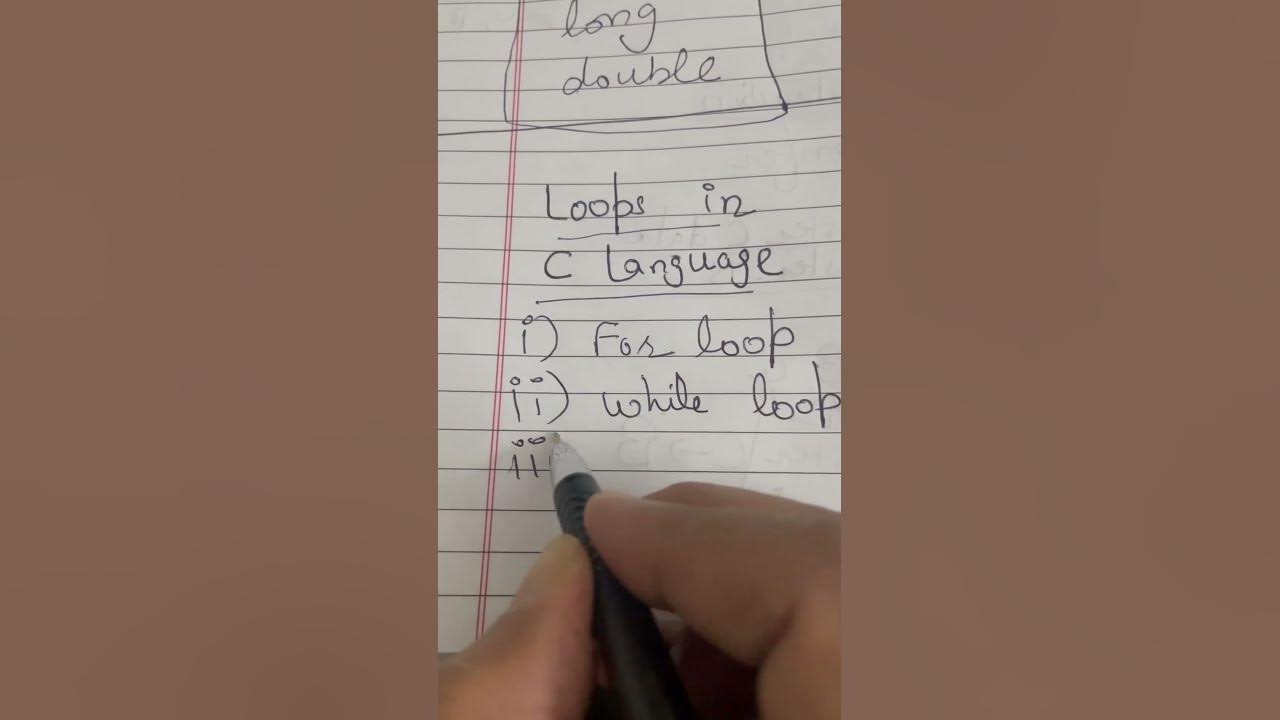 long
double
Loops in
C language
i) For loop
ii) while loop
iii